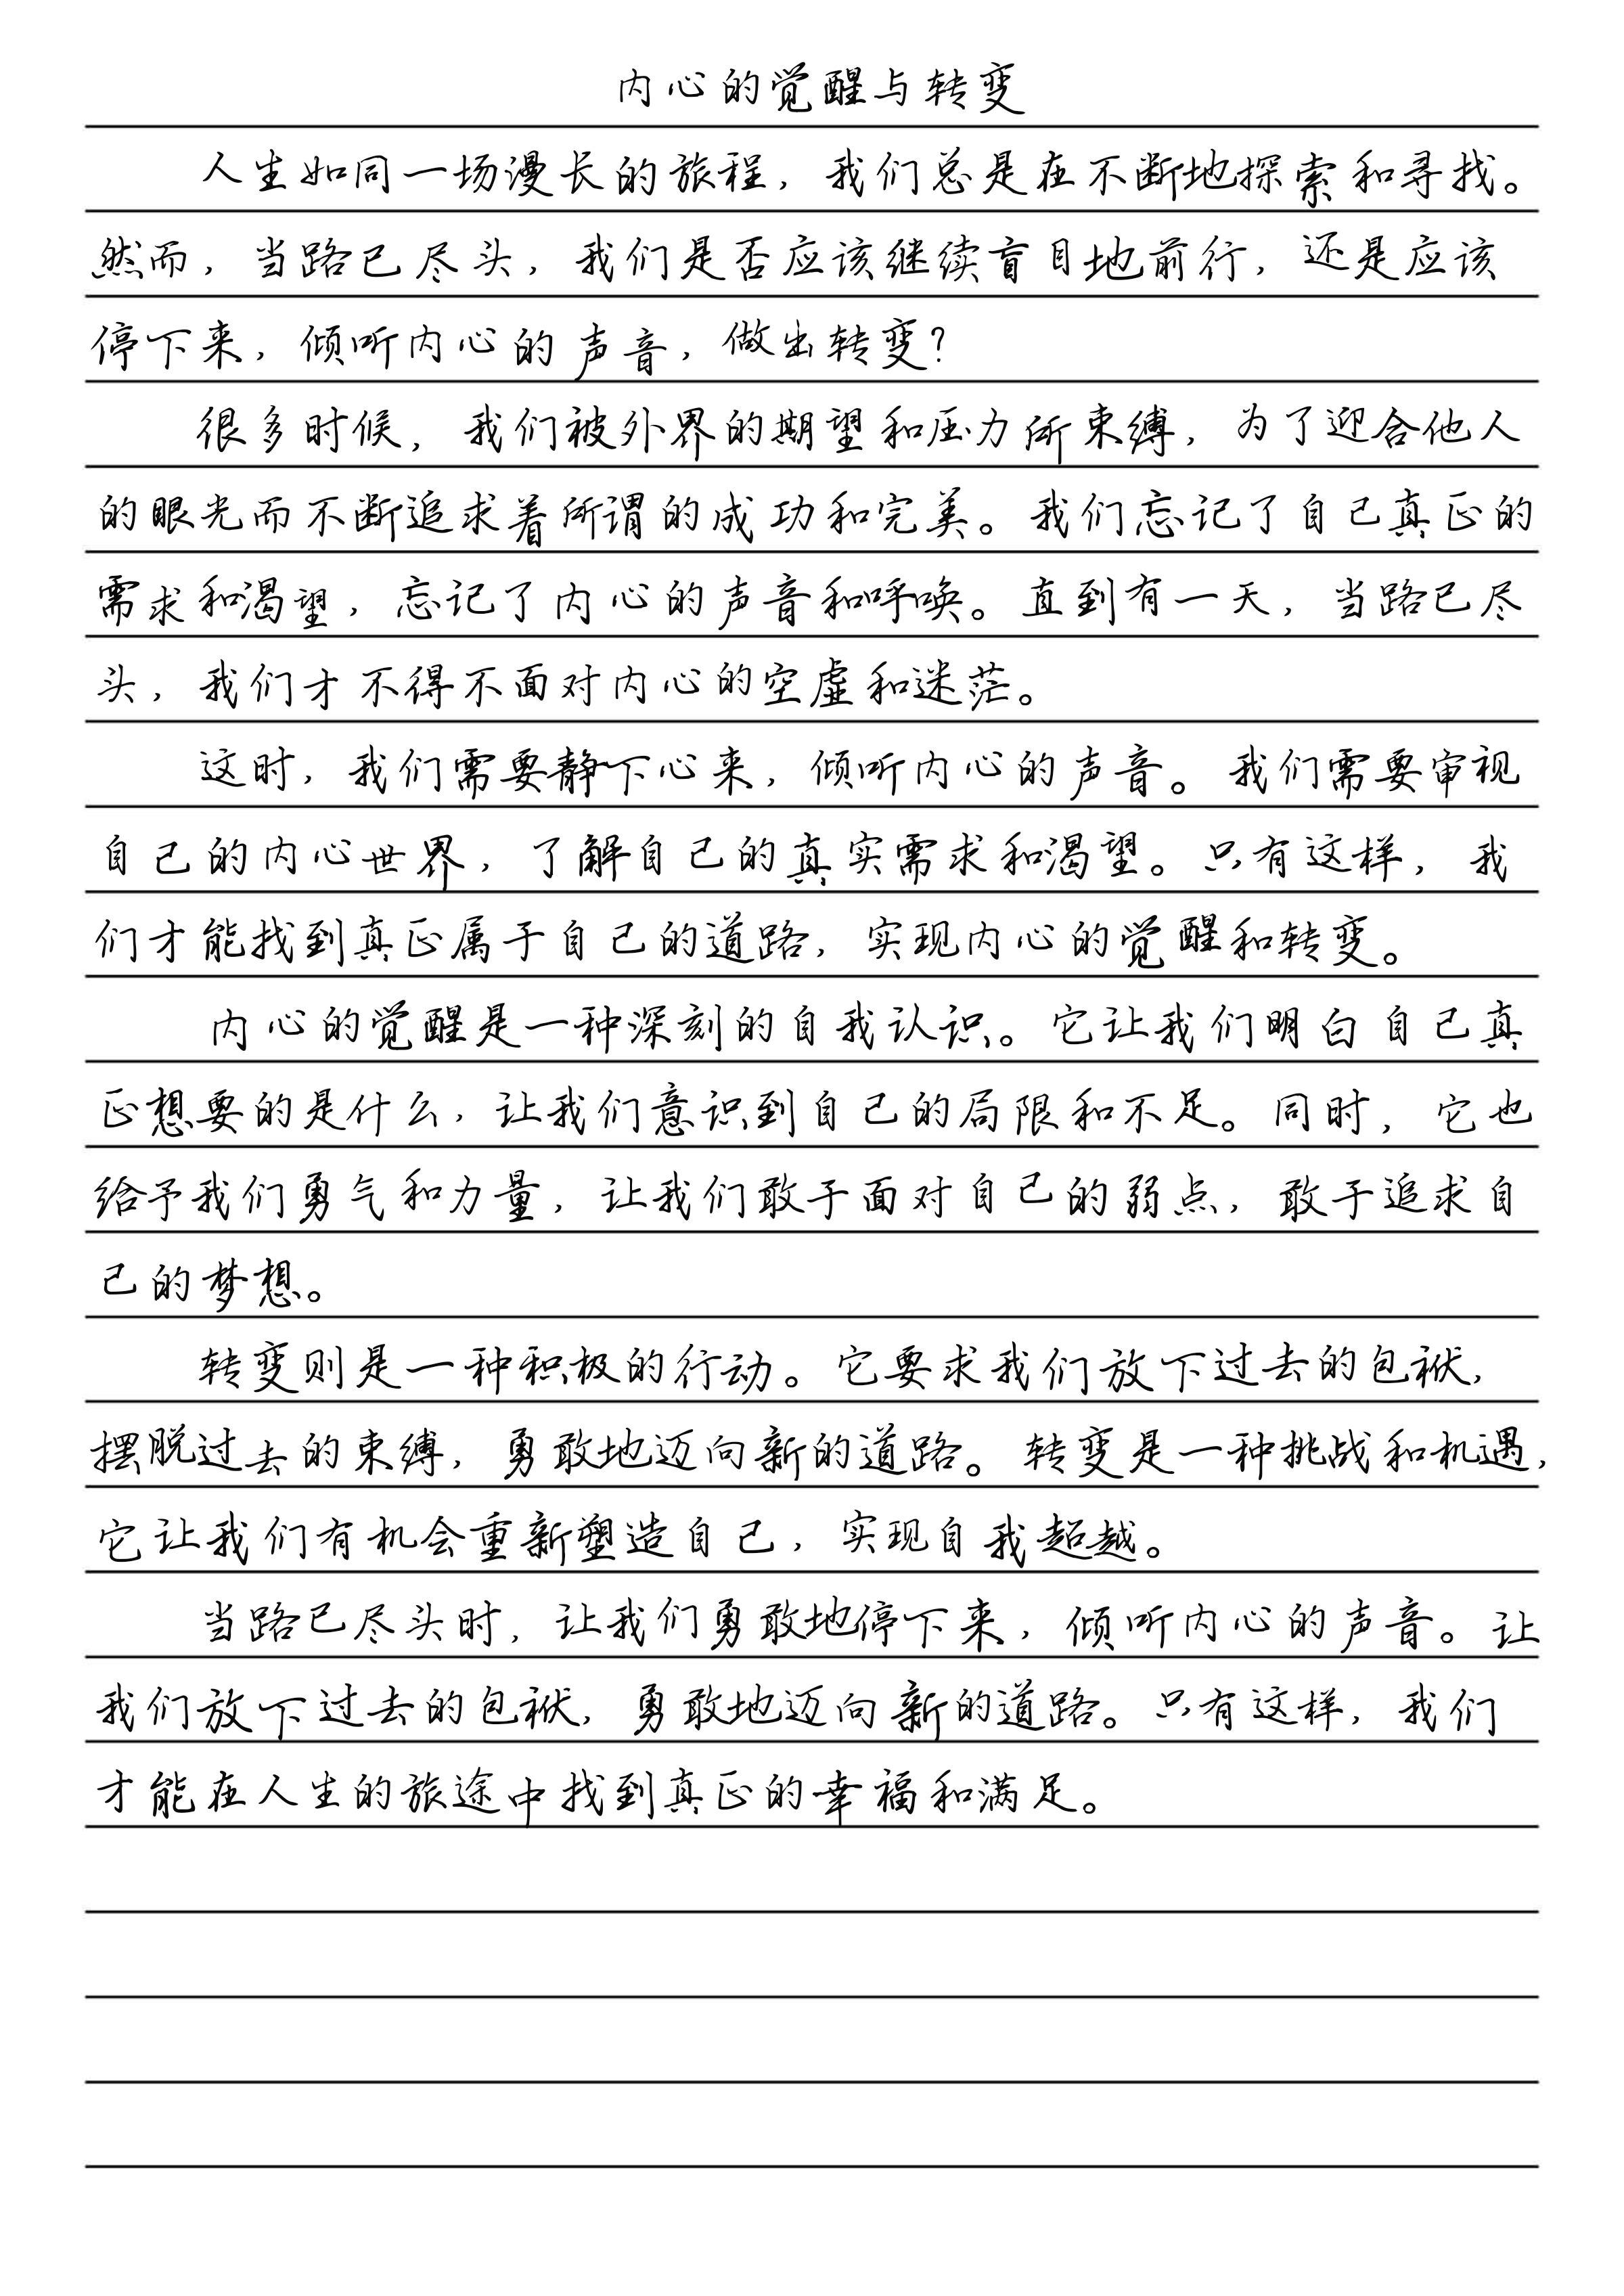 内心的觉醒与转变
人生如同一场漫长的旅程，我们总是在不断地探索和寻找。
然而，当路已尽头，我们是否应该继续盲目地前行，还是应该
停下来，倾听内心的声音，做出转变？
很多时候，我们被外界的期望和压力所束缚，为了迎合他人
的眼光而不断追求着所谓的成功和完美。我们忘记了自己真正的
需求和渴望，忘记了内心的声音和呼唤。直到有一天，当路已尽
头，我们才不得不面对内心的空虚和迷茫。
这时，我们需要静下心来，倾听内心的声音。我们需要审视
自己的内心世界，了解自己的真实需求和渴望。只有这样，我
们才能找到真正属于自己的道路，实现内心的觉醒和转变。
内心的觉醒是一种深刻的自我认识。它让我们明白自己真
正想要的是什么，让我们意识到自己的局限和不足。同时，它也
给予我们勇气和力量，让我们敢于面对自己的弱点，敢于追求自
己的梦想。
转变则是一种积极的行动。它要求我们放下过去的包袱，
摆脱过去的束缚，勇敢地迈向新的道路。转变是一种挑战和机遇，
它让我们有机会重新塑造自己，实现自我超越。
当路已尽头时，让我们勇敢地停下来，倾听内心的声音。让
我们放下过去的包袱，勇敢地迈向新的道路。只有这样，我们
才能在人生的旅途中找到真正的幸福和满足。